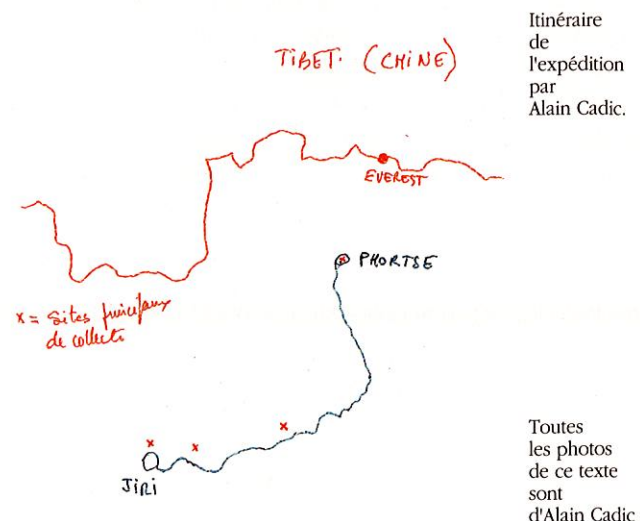 Itinéraire
de
l'expédition
par
Alain Cadic.
TIBET. (CHINE)
EVEREST
PHORTSE
x = Sites principaux
de collecte
JIRI
Toutes
les photos
de ce texte
sont
d'Alain Cadic